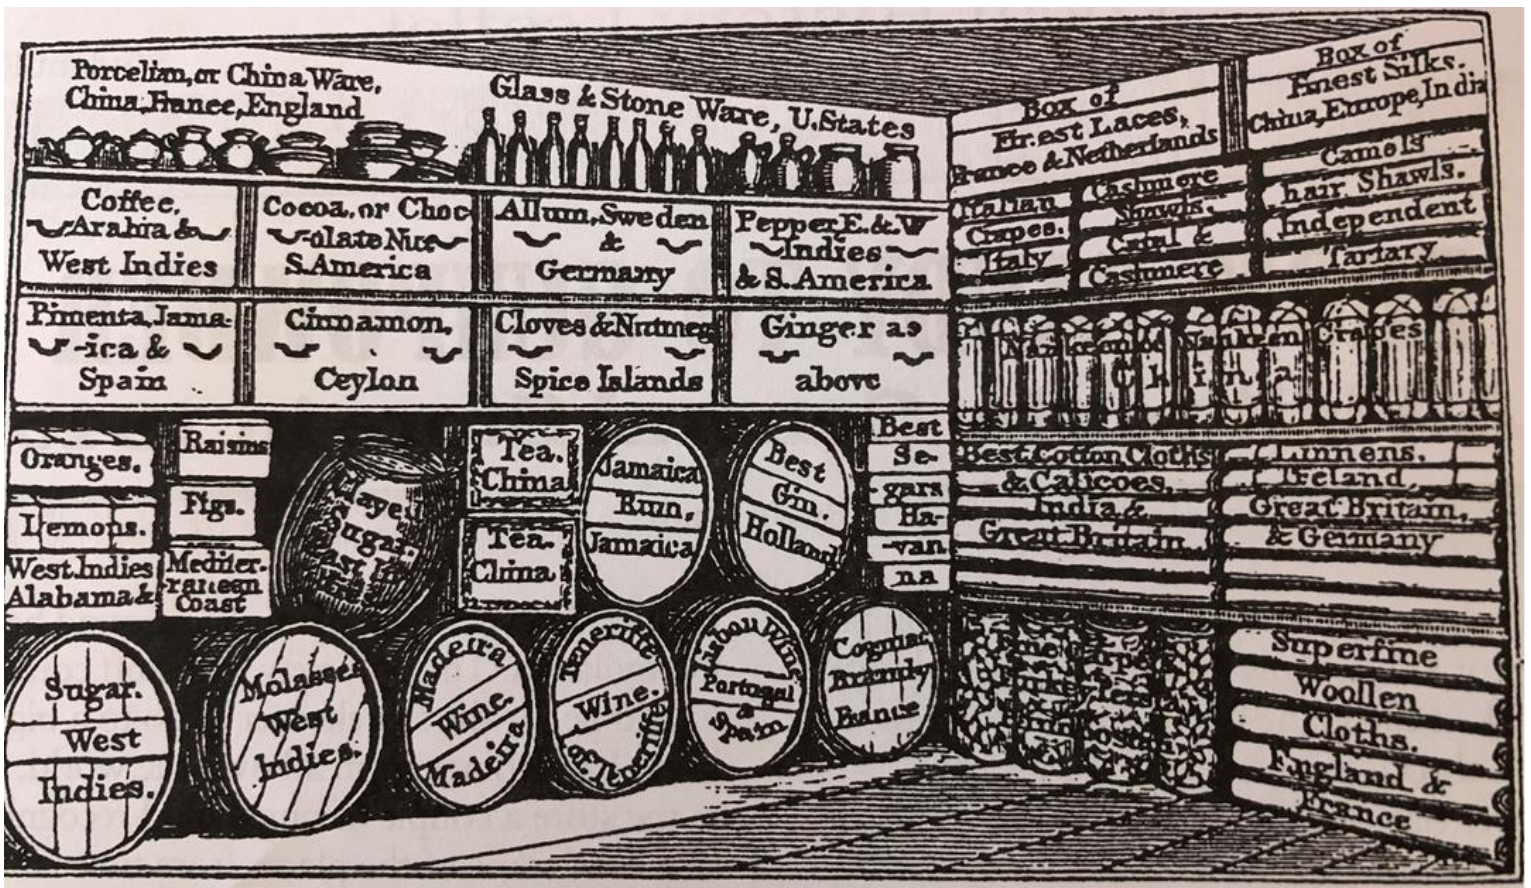 Porcelian, or China Ware,
China, France, England
Glass & Stone Ware, U.States
Box of
Finest Laces,
France & Netherlands
Box of
Finest Silks.
China, Europe, India
Coffee,
Arabia &
West Indies
Cocoa, or Choc
-olate Nuts
S.America
Allum, Sweden
&
Germany
Pepper, E.& W
Indies
& S.America
Italian
Crapes.
Italy
Cashmere
Shawls.
&
Cashmere
Camels
hair Shawls.
Independent
Tartary
Pimenta, Jama-
-ica &
Spain
Cinnamon,
Ceylon
Cloves & Nutmeg
Spice Islands
Ginger as
above
Nankeen Crapes
China
Oranges.
Lemons.
West Indies
Alabama &
Raisins
Figs.
Mediter-
ranean
Coast
Sugar.
Tea.
China
Tea.
China
Jamaica
Rum,
Jamaica
Best
Gin.
Holland
Best
Se-
gars
Ha-
-van
na
Best Cotton Cloths
& Calicoes,
India &
Great Britain
Linnens.
Ireland,
Great Britain,
& Germany
Sugar.
West
Indies.
Molasses
West
Indies.
Madeira
Wine.
Madeira
Teneriffe
Wine.
of Teneriffe
Lisbon Wine
Portugal
&
Spain
Cognac
Brandy
France
Superfine
Woollen
Cloths.
England &
France